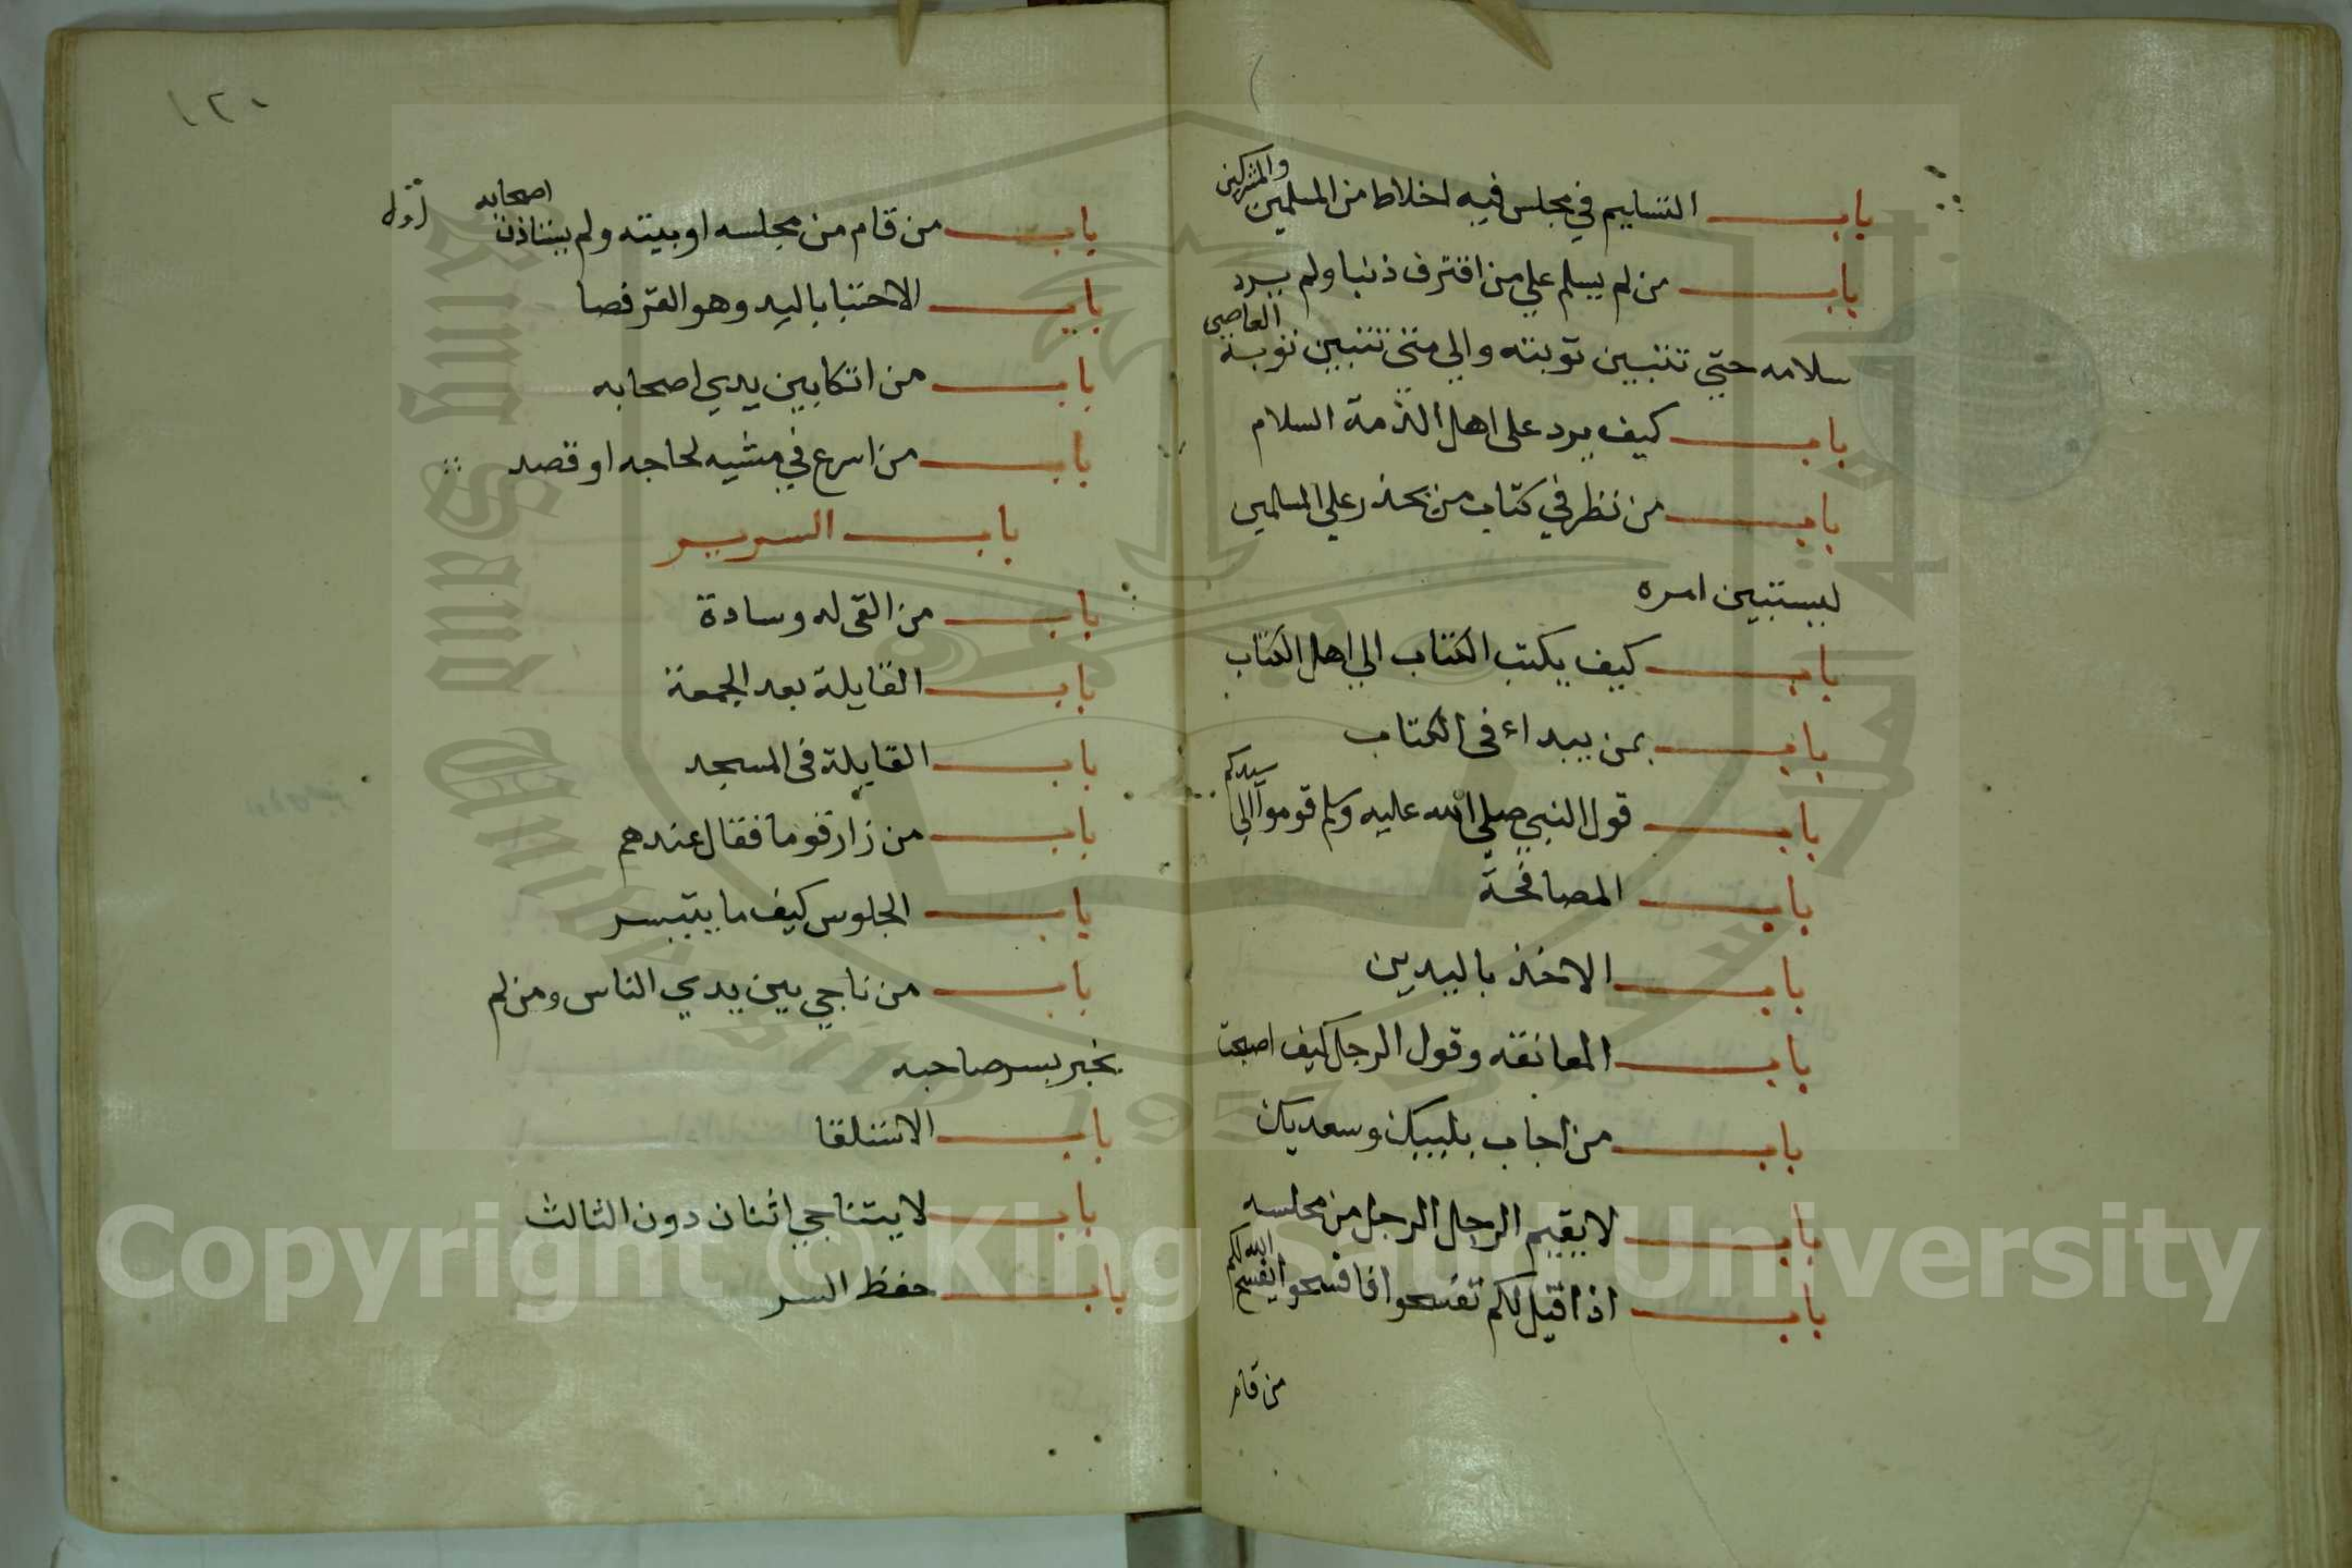 باب التسليم في مجلس فيه اخلاط من المسلمين والمشركين
باب من لم يسلم علي من اقترف ذنبا ولم يرد
سلامه حتي تتبين توبته والي متي تتبين توبة العاصي
باب كيف يرد على اهل الذمة السلام
باب من نظر في كتاب من يحذر علي المسلمين
ليستبين امره
باب كيف يكتب الكتاب الي اهل الكتاب
باب بمن يبداء في الكتاب
باب قول النبي صلي الله عليه وسلم قوموا الي سيدكم
باب المصافحة
باب الاخذ باليدين
باب المعانقه وقول الرجل كيف اصبحت
باب من اجاب بلبيك وسعديك
باب لا يقيم الرجل الرجل من مجلسه
باب اذا قيل لكم تفسحوا فافسحوا يفسح الله لكم
من قام
١٢٠
باب من قام من مجلسه او بيته ولم يستاذن اصحابه
باب الاحتبا باليد وهو القرفصا
باب من اتكا بين يدي اصحابه
باب من اسرع في مشيه لحاجه او قصد
باب السرير
باب من القى له وسادة
باب القايلة بعد الجمعة
باب القايلة في المسجد
باب من زار قوما فقال عندهم
باب الجلوس كيف ما يتيسر
باب من ناجي بين يدي الناس ومن لم
يخبر بسر صاحبه
باب الاستلقا
باب لا يتناجي اثنان دون الثالث
باب حفظ السر
King Saud University
1957
Copyright © King Saud University